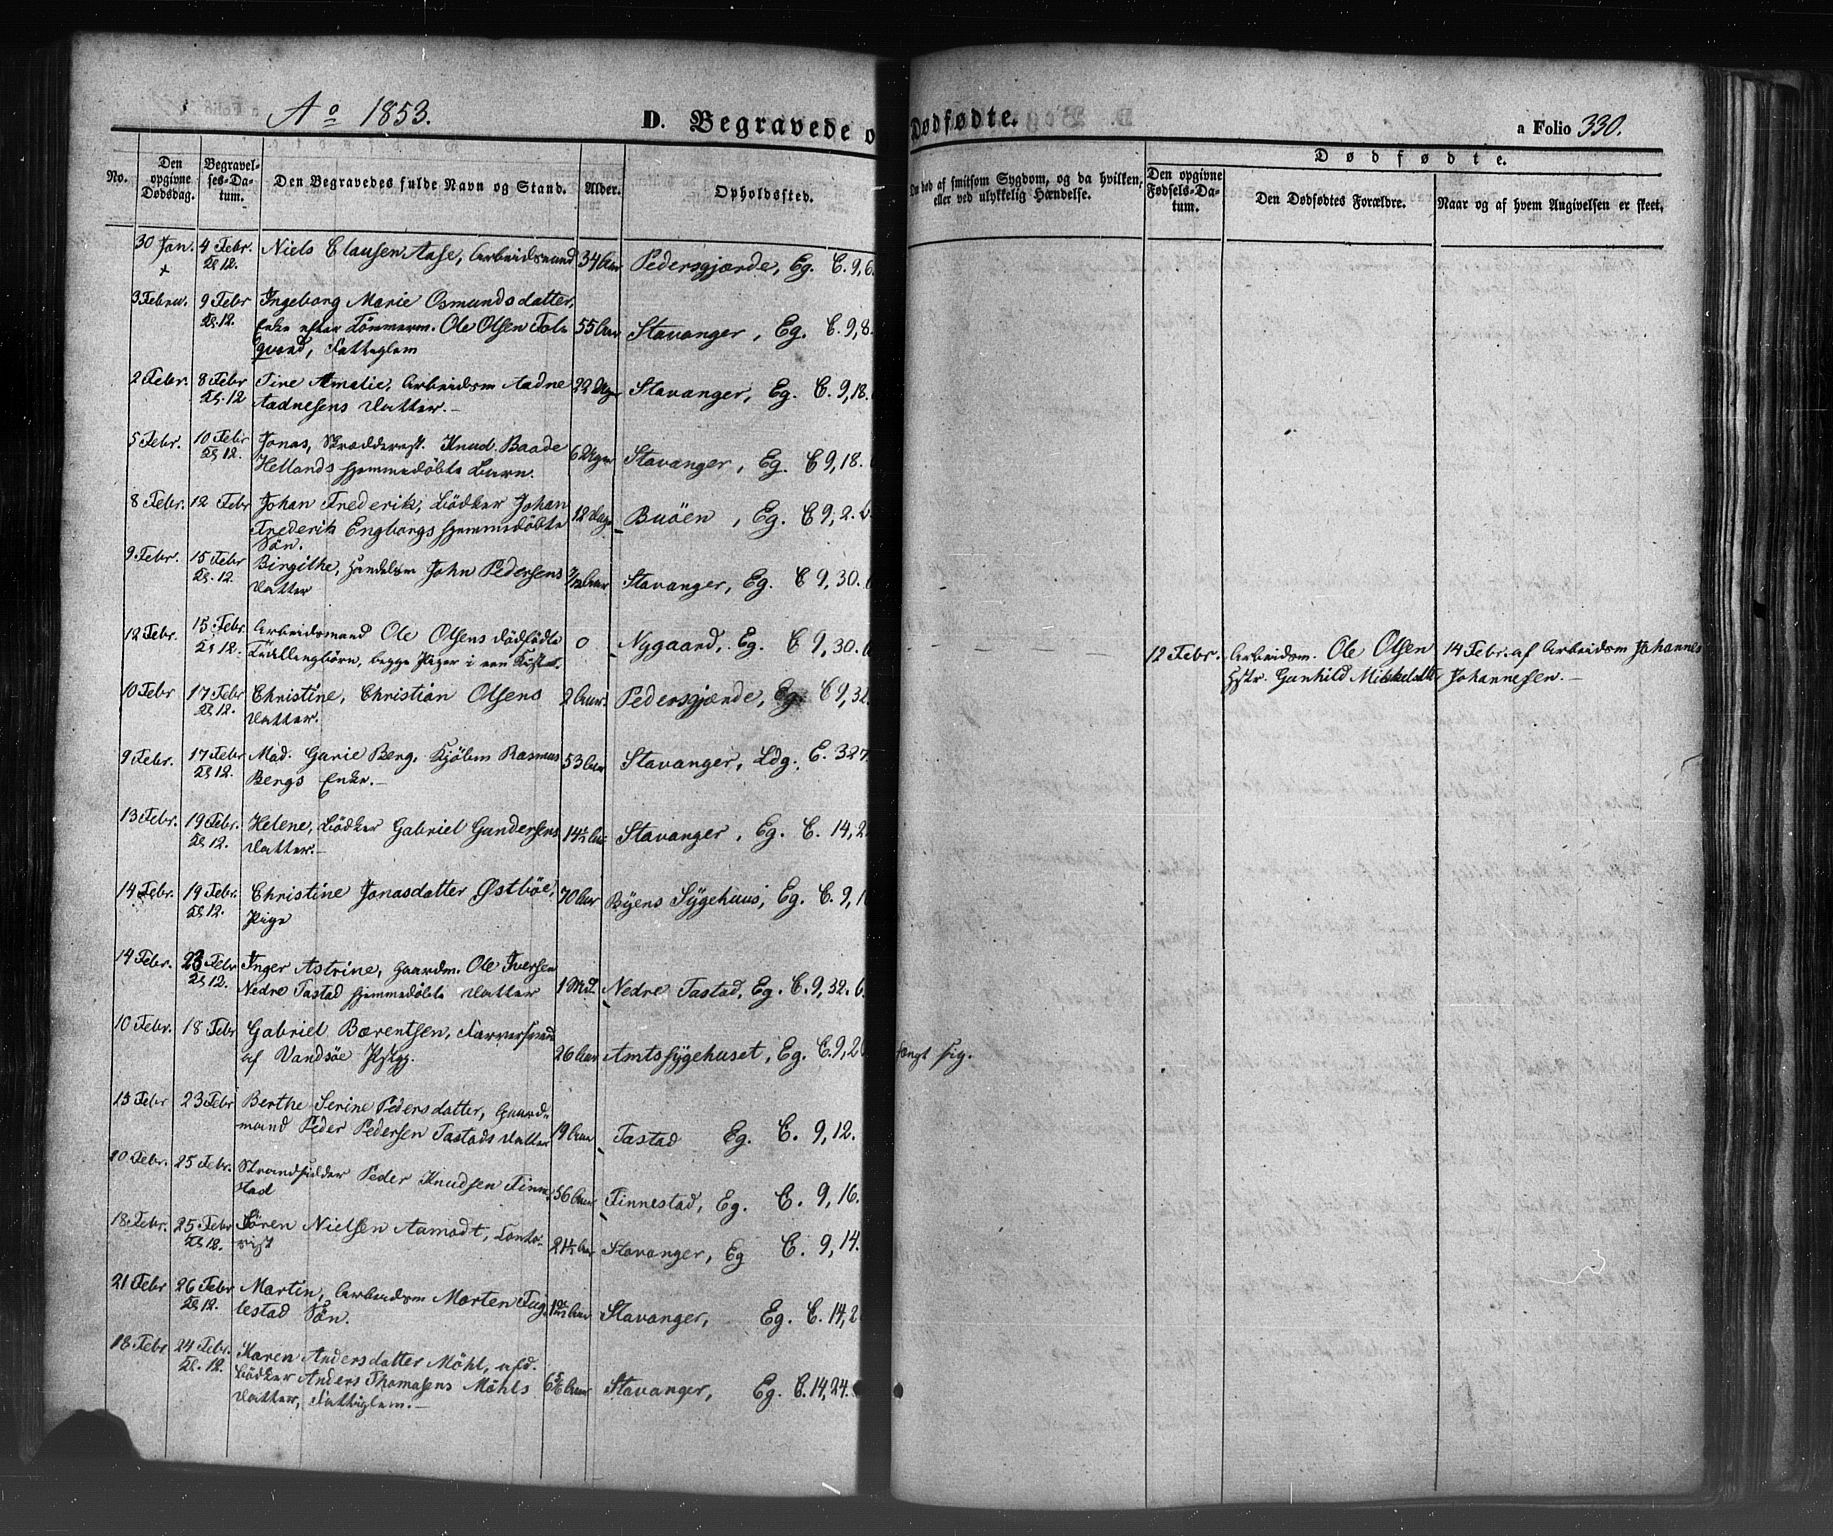 Ao 1853.
D. Begravede o
Dødfødte.
a Folio 330.
No.
Den opgivne Dødsdag.
Begravelses-Datum.
Den Begravedes fulde Navn og Stand.
Alder.
Opholdssted.
Om død af smitsom Sygdom, og da hvilken, eller ved ulykkelig Hændelse.
Dødfødte.
Den opgivne Fødsels-Datum.
Den Dødfødtes Forældre.
Naar og af hvem Angivelsen er skeet.
30 Jan. 4 Febr. Niels Clausen Aase, Arbeidsmand 34 Aar Pedersgjærde, Eg. C. 9, 6
Kl 12.
3 Febru. 9 Febr Ingeborg Marie Osmundsdatter,
Kl. 12. Enke efter Tømmerm. Ole Olsen 55 Aar Stavanger, Eg. C. 9, 8.
Fattiglem
2 Febr. 8 Febr Tine Amalie, Arbeidsm Aadne 22 Uger Stavanger, Eg. C. 9, 18.
Kl. 12 Aadnesens Datter.-
5 Febr. 10 Febr Jonas, Skrædderst. Knud Baade 6 Uger Stavanger, Eg. C 9, 18.
Kl 12. Hellands hjemmedøbte Barn.
8 Febr. 12 Febr Johan Frederik, Bødker Johan 12 Dage Buöen, Eg. C 9, 2.
Frederik Engborgs hjemmedøbte
Sön.
9 Febr. 15 Febr Birgithe, Handelsm John Pedersens Stavanger, Eg. C 9, 30.
Kl. 12. Datter
12 Febr. 15 Febr. Arbeidsmand Ole Olsens dödfödte 0 Nygaard, Eg. C 9, 30. 12 Febr. Arbeidsm. Ole Olsen 14 Febr. af Arbeidsm Johannes
Kl 12. Tvillingbörn, begge Piger i een Kiste. Hstr. Gunhild Johannesen.-
10 Febr 17 Febr Christine, Christian Olsens 2 Aar Pedersgjærde, Eg. C 9, 32.
Kl 12. Datter.
9 Febr. 17 Febr Mad. Garie Berg, Kjöbm Rasmus 53 Aar Stavanger, Ldg. C. 327.
Kl 12. Bergs Enke.-
13 Febr. 19 Febr. Helene, Bödker Gabriel Gundersens 14½ Aar Stavanger, Eg. C. 14, 2
Kl 12. Datter.-
14 Febr. 19 Febr. Christine Jonasdatter Østböe, 70 Aar Byens Sygehuus, Eg. C. 9, 1
Kl 12. Pige
14 Febr. 23 Febr Inger Astrine, Gaardm. Ole Iversen 1 Md. Nedre Tastad, Eg. C. 9, 32. 6
Kl 12. Nedre Tastad hjemmedøbte Datter
10 Febr. 18 Febr Gabriel Bærentsen, Farversvend 26 Aar Amtssygehuset, Eg. C. 9, 2 hængt sig.
af Vandsöe Pstgj.
15 Febr 23 Febr Berthe Serine Pedersdatter, Gaard-
mand Peder Pedersen Tastads Datter 19 Aar Tastad Eg. C. 9, 12.
20 Febr. 25 Febr. Strandsidder Peder Knudsen Finne- 56 Aar Finnestad, Eg. C. 9, 16.
stad
18 Febr. 25 Febr Sören Nielsen Aamodt, Conto- 21½ Aar Stavanger, Eg C. 9, 14.
Kl 12. rist
21 Febr 26 Febr Martin, Arbeidsm Morten Fug- Stavanger, Eg. C. 14, 2
Kl 12. lestad Sön.
18 Febr 24 Febr. Karen Andersdatter Möhl, afd.
Kl. 12 Bödker Anders Thomasens Möhls Stavanger, Eg. C. 14, 24.
Datter, Fattiglem.-